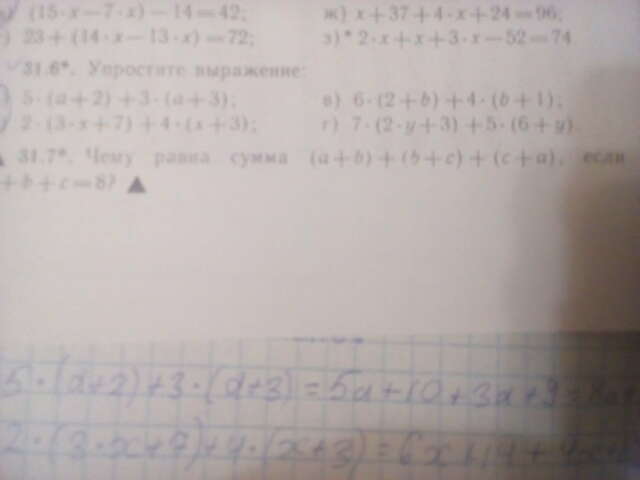 (15·x−7·x)−14=42;
23+(14·x−13·x)=72;
ж) x+37+4·x+24=96;
з)* 2·x+x+3·x−52=74
31.6*. Упростите выражение:
5·(a+2)+3·(a+3);
2·(3·x+7)+4·(x+3);
в) 6·(2+b)+4·(b+1);
г) 7·(2·y+3)+5·(6+y).
31.7*. Чему равна сумма (a+b)+(b+c)+(c+a), если
+b+c=8? ▲
5·(a+2)+3·(a+3)=5a+10+3a+9=8a+
2·(3·x+7)+4·(x+3)=6x+14+4x+